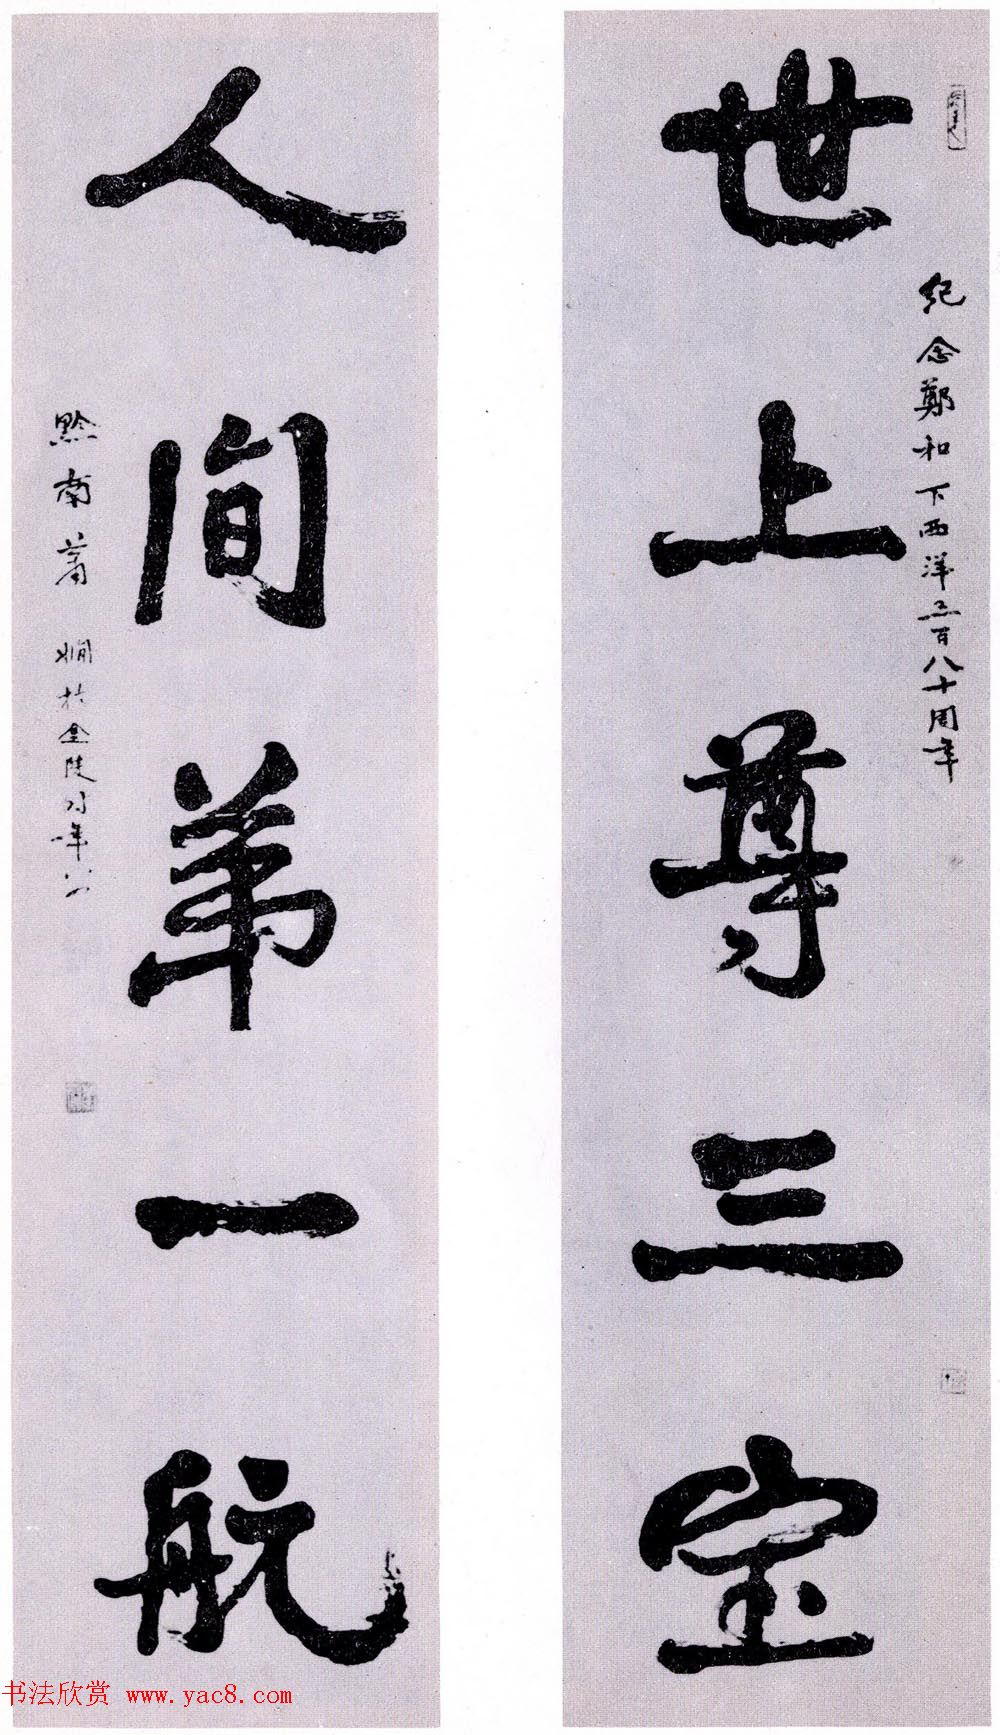 纪念鄭和下西洋五百八十周年
世上尊三宝
人间第一航
黔南萧娴於金陵时年八
书法欣赏 www.yac8.com